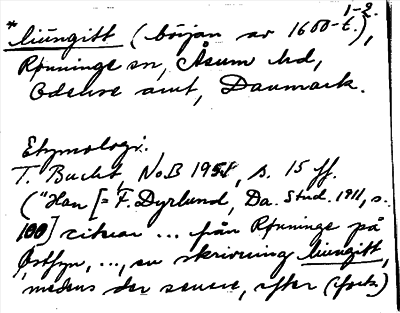 1-2.
*liüngitt (början av 1600-t.),
Rønninge sn, Åsum hd,
Odense amt, Danmark.
Etymologi.
T. Bucht, NoB 1951, s. 15 ff.
("Han [= F. Dyrlund, Da. Stud. 1911, s.
100] citerar ... från Rønninge på
Østfyn, ..., en skrivning liungitt,
medens der senere, efter (fork.)